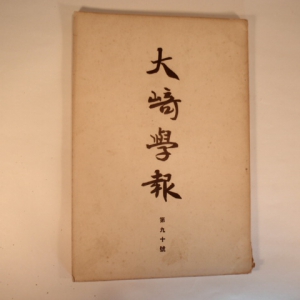 大﨑學報
第九十號